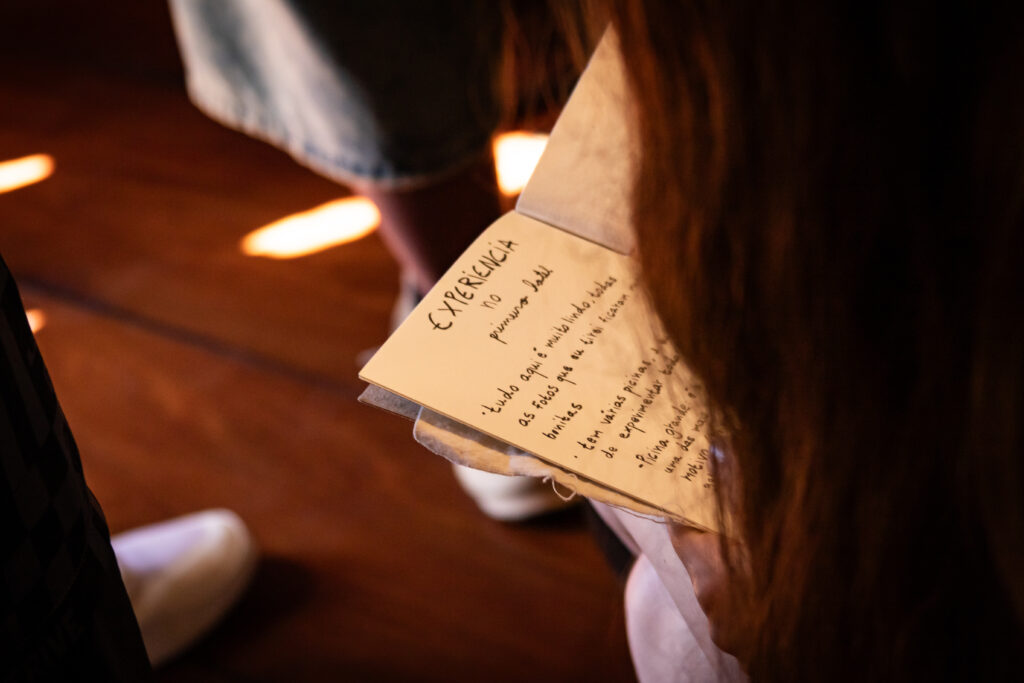 EXPERIENCIA
no
primeiro hotel
· tudo aqui é muito lindo, todas
as fotos que eu tirei ficaram
bonitas
· tem várias picinas,
de experimentar
- Picina grande é
uma das
motivo